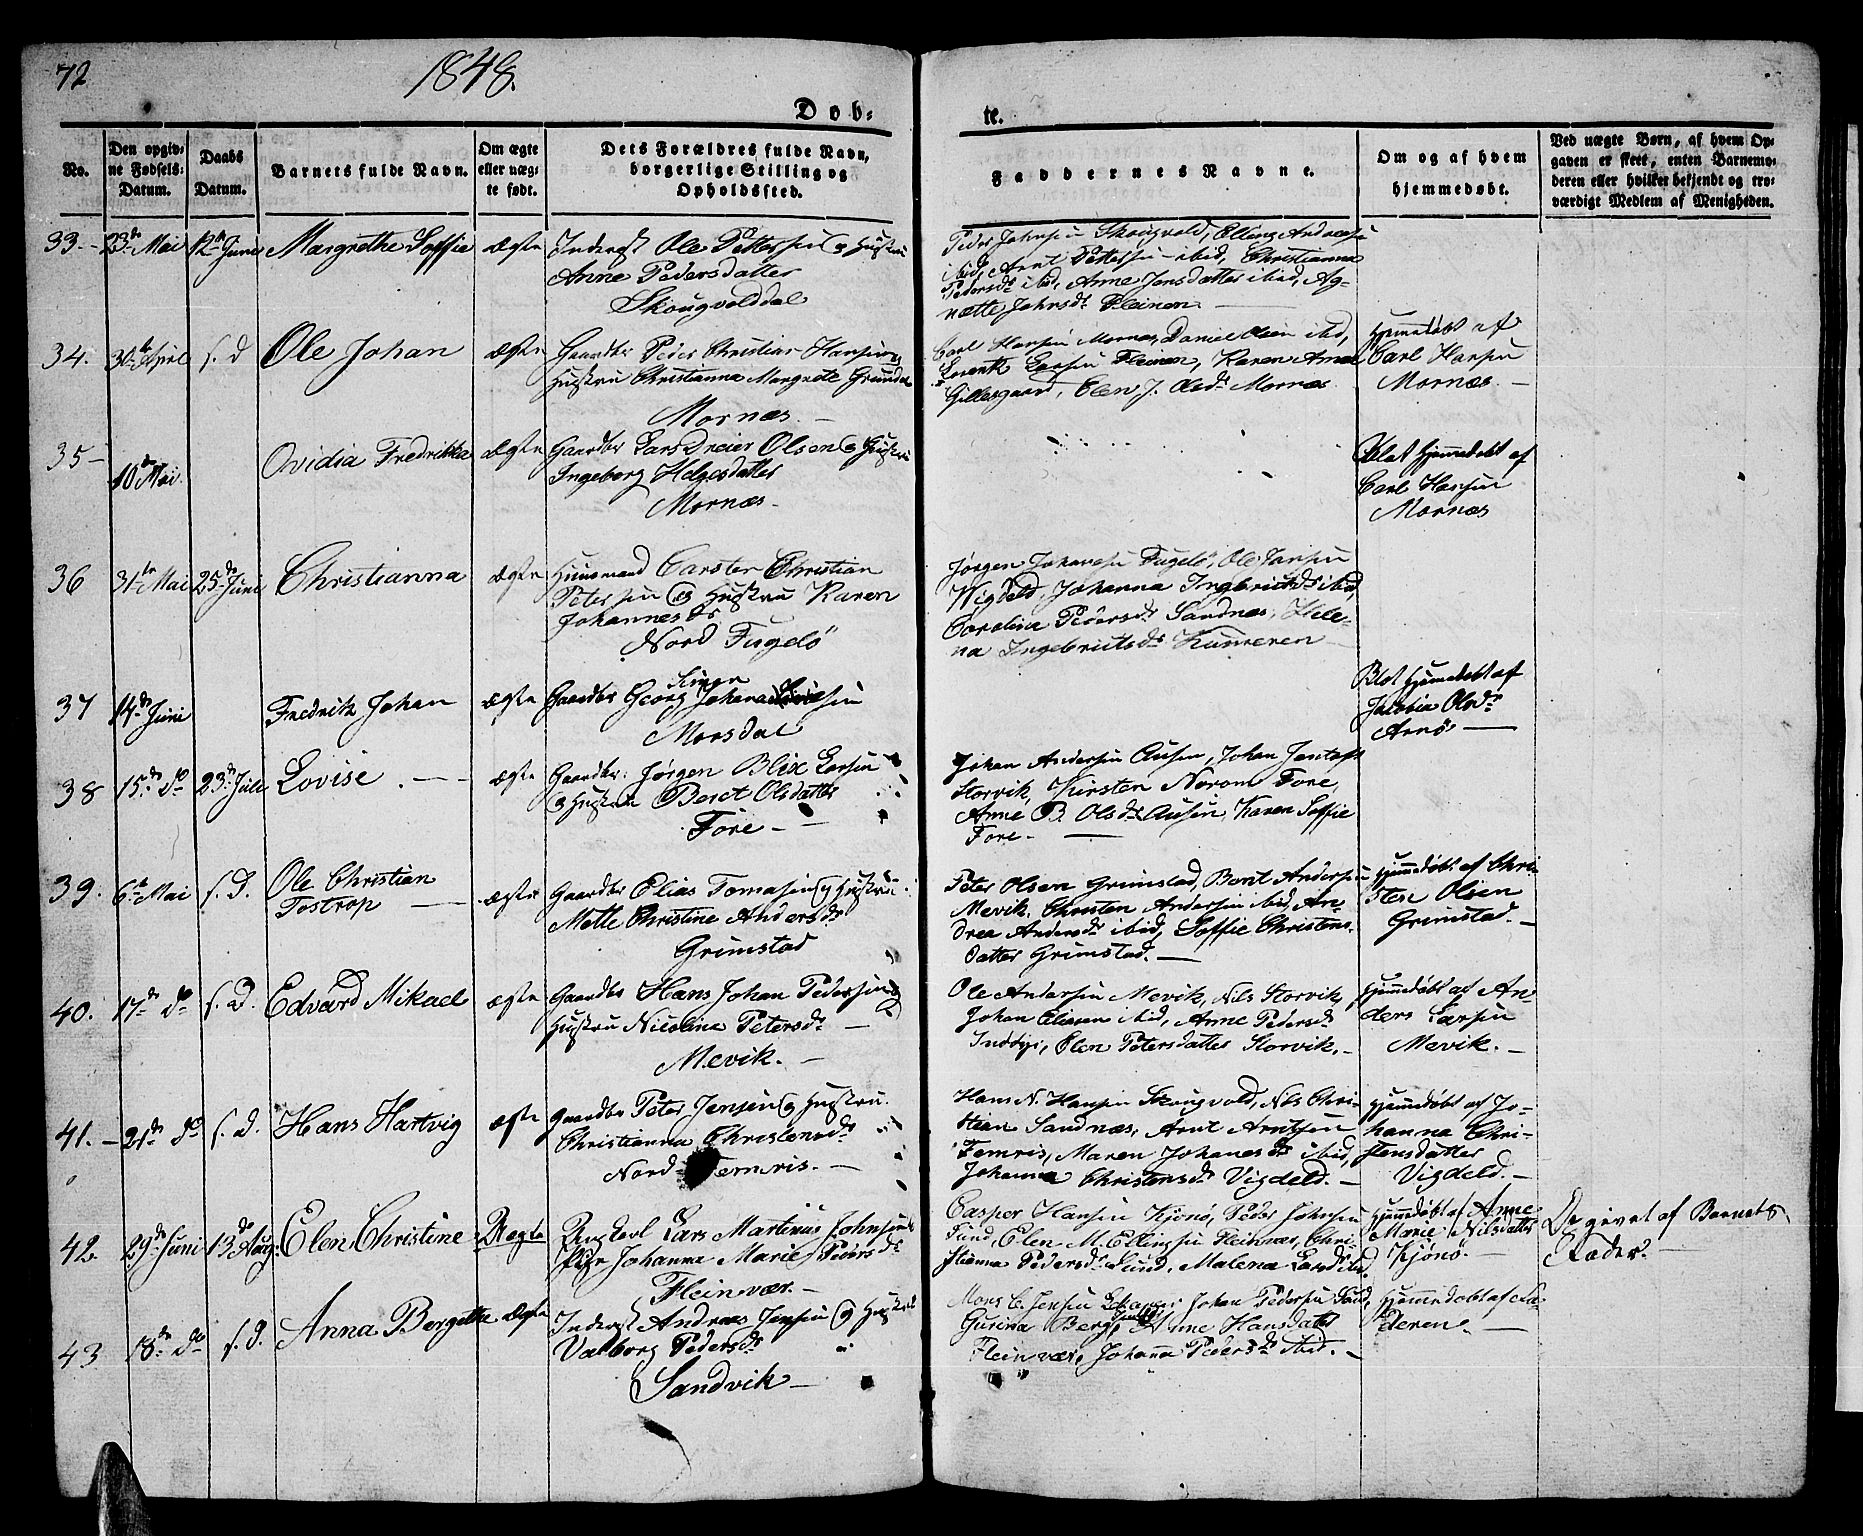 72
1848.
Døb-
te.
No.
Den opgiv-
ne Fødsels-
Datum.
Daabs
Datum.
Barnets fulde Navn.
Om ægte
eller uæg-
te født.
Dets Forældres fulde Navn,
borgerlige Stilling og
Opholdssted.
Faddernes Navne.
Om og af hvem
hjemmedøbt.
Ved uægte Børn, af hvem Op-
gaven er skeet, enten Barnemo-
deren eller hvilket bekjendt og tro-
værdigt Medlem af Menigheden.
33- 23de Mai 12te Juni Margrethe Soffie ægte Inderst Ole Pettersen og Hustru
Anne Pedersdatter
Skougvolddal
Peder Johnsen Skougvold, Elling Andersen
ibid, Arnt Pettersen ibid, Christianna
Pedersdr ibid, Anne Jensdatter ibid, Ag-
nette Johnsdr Fleinen
34. 30te April s. d Ole Johan ægte Gaardbr Peder Christian Hansen og
Hustru Christianna Margrete Grundel
Mornæs
Carl Hansen Mornæs, Daniel Olsen ibid,
Lorentz Larsen Fleinen, Karen Anne
Gildesgaard, Elen J. Olsdr Mornæs
Hjemmedøbt af
Carl Hansen
Mornæs.
35- 10de Mai Ovidia Fredrikka ægte Gaardbr Lars Dreier Olsen og Hustru
Ingeborg Helgesdatter
Mornæs
Blot hjemmedøbt af
Carl Hansen
Mornæs
36 31te Mai 25de Juni Christianna ægte Huusmand Carsten Christian
Petersen og Hustru Karen
Johannesdr
Nord Fugelø
Jørgen Johannesen Fugelø, Ole Jansen
Wigdeld, Johanna Ingebrictsdr ibid,
Carolina Pedersdr Sandnæs, Hele-
na Ingebrictsdr
37 14de Juni Fredrik Johan ægte Gaardbr Georg Simon Johannessen
Morsdal
Blot hjemmedøbt af
Jacobia Olsdr
Arnø
38 15de do 23de Juli Lovise ægte Gaardbr. Jørgen Blix Larsen
og Hustru Beret Olsdatter
Fore
Johan Andersen Ausen, Johan Jentoft
Storvik, Kirsten Norom Fore,
Anne B. Olsdr Ausen, Karen Soffie
Fore
39. 6te Mai s. D. Ole Christian
Tostrop ægte Gaardbr Elias Tomasen og Hustru
Mette Christine Andersdr
Grimstad
Peter Olsen Grimstad, Bent Andersen
Mevik, Christen Andersen ibid, An-
drea Andersdr ibid, Soffie Christens-
datter Grimstad.
Hjemmedøbt af Chri-
sten Olsen
Grimstad.
40. 17de do s. D. Edvard Mikael ægte Gaardbr Hans Johan Pedersen og
Hustru Nicolina Petersdr
Mevik.
Ole Andersen Mevik, Nils Storvik,
Johan Eliasen ibid, Anne Pedersdr
Inddyr, Elen Petersdatter Storvik.
Hjemmedøbt af An-
ders Larsen
Mevik.
41. 21de do s. D. Hans Hartvig ægte Gaardbr Peter Jensen og Hustru
Christianna Christensdr
Nord Femris.
Hans N. Hansen Skougvold, Nils Chri-
stian Sandnæs, Arnt Arntsen
Femris, Maren Johanesdr ibid,
Johanna Christensdr Vigdeld.
Hjemmedøbt af Jo-
hanna Chri-
stensdatter
Vigdeld.
42. 29de Juni 13de Aug. Elen Christine Uægte Ungkarl Lars Martinus Johnsen
Pige Johanna Marie Pedersdr
Fleinvær.
Casper Hansen Kjønø, Peder Johnsen
Sund, Elen M. Ellingsen Fleinvær, Chri-
stianna Pedersdr Sund, Malena Larsdr ibid.
Hjemmedøbt af Anne
Marie Nilsdatter
Kjønø.
Opgivet af Barnets
Fader.
43 18de do s. d. Anna Bergitha ægte Inderst Andreas Jensen og Hustru
Valborg Pedersdr
Sandvik
Mons C. Jensen Johan Pedersen Sund,
Gurina Berg, Anne Hansdatr
Fleinvær, Johanna Pedersdr ibid.
Hjemmedøbt af Fa-
deren.